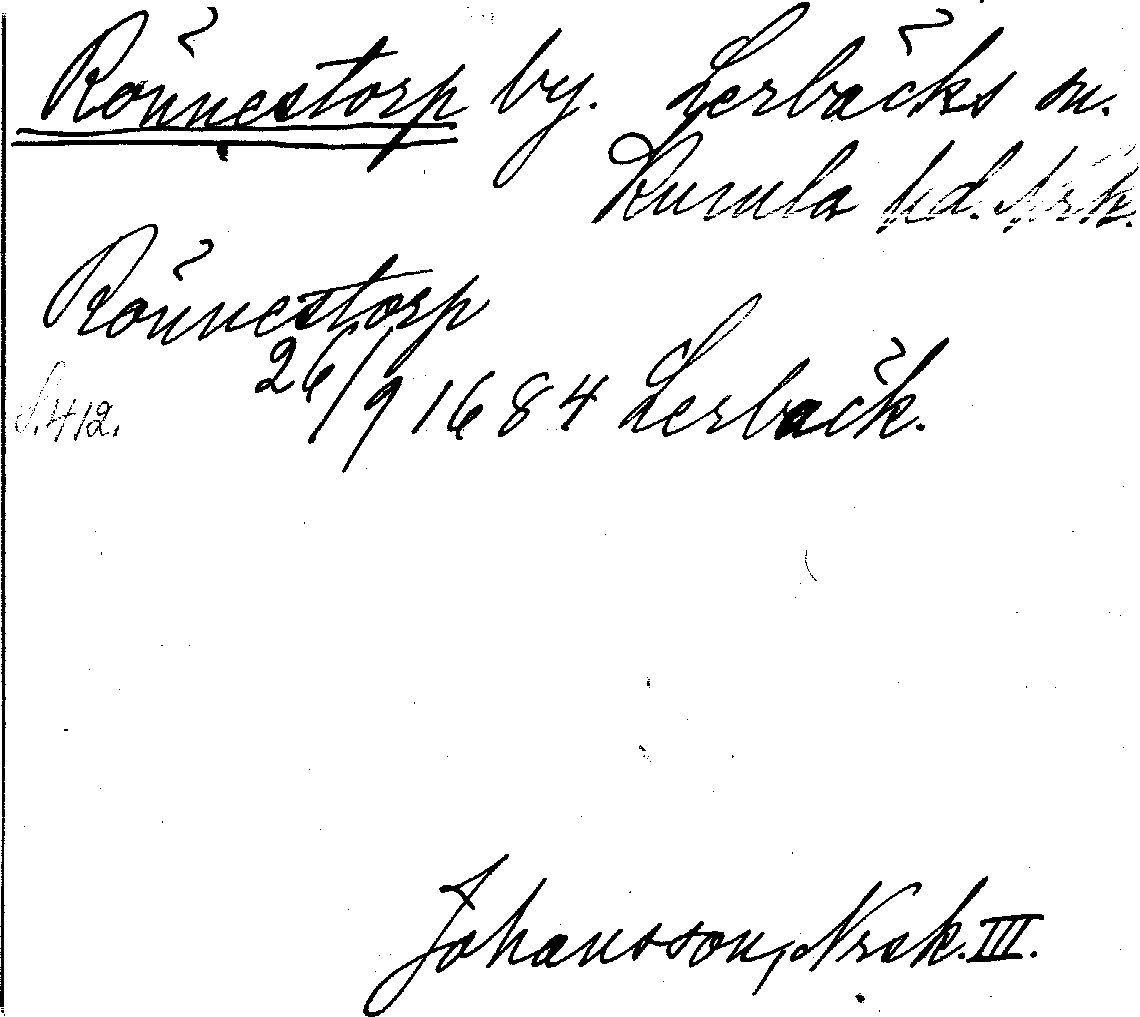 Rönnestorp by. Lerbäcks sn.
Kumla hd. Nrk.
Rönnestorp
26/9 1684 Lerbäck.
S. 412.
Johansson, Nrck. III.